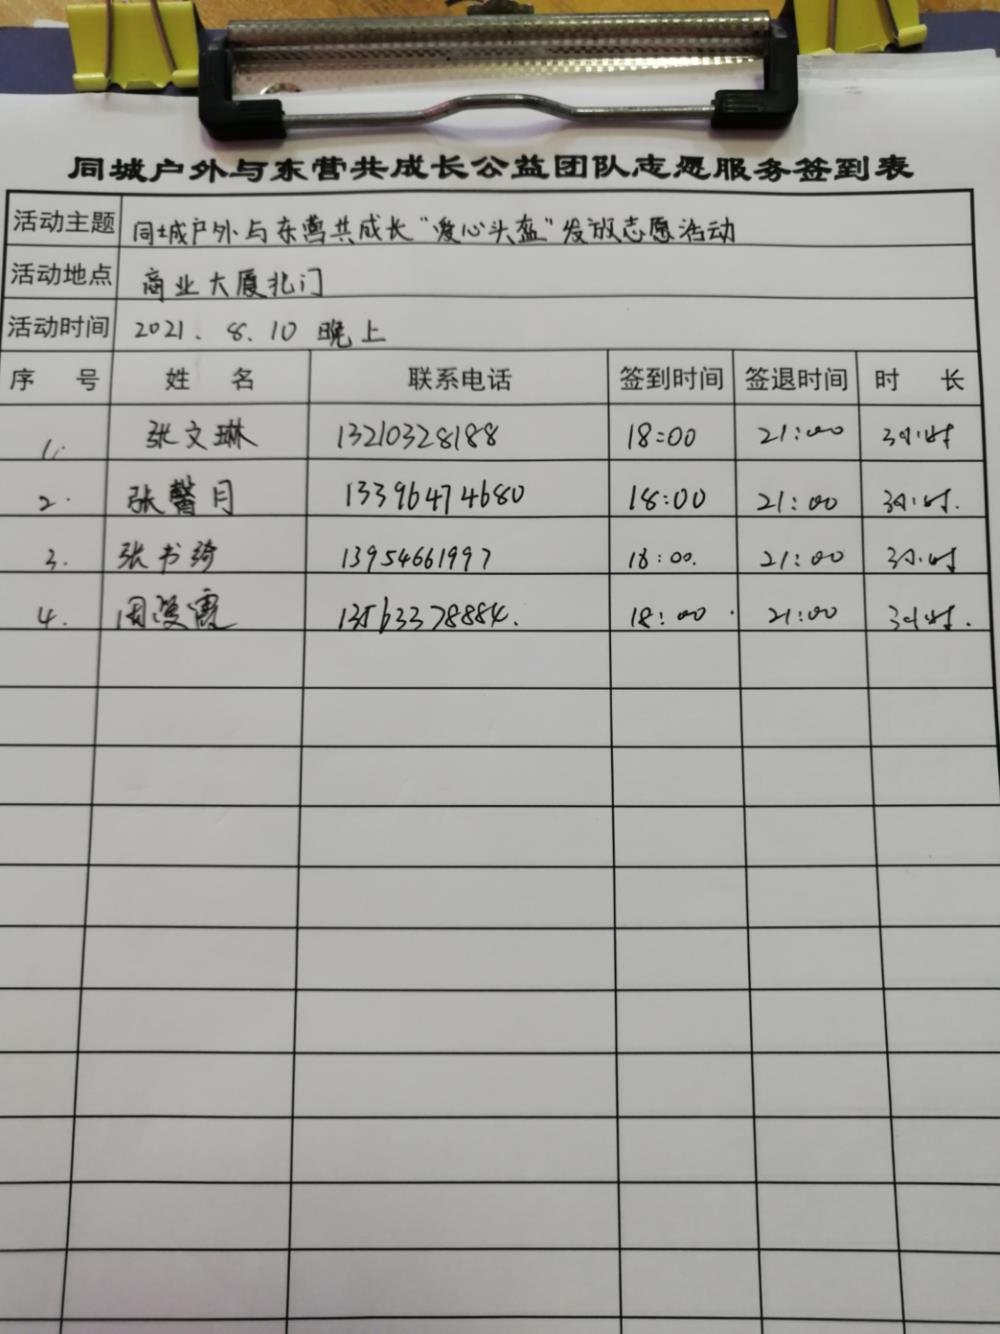 同城户外与东营共成长公益团队志愿服务签到表
活动主题 同城户外与东营共成长“爱心头盔”发放志愿活动
活动地点 商业大厦北门
活动时间 2021. 8. 10 晚上
序 号 姓 名 联系电话 签到时间 签退时间 时 长
1. 张文琳 13210328188 18:00 21:00 3小时
2. 张馨月 13396474680 18:00 21:00 3小时.
3. 张书绮 13954661997 18:00. 21:00 3小时
4. 周爱霞 13563378884. 18:00. 21:00 3小时.